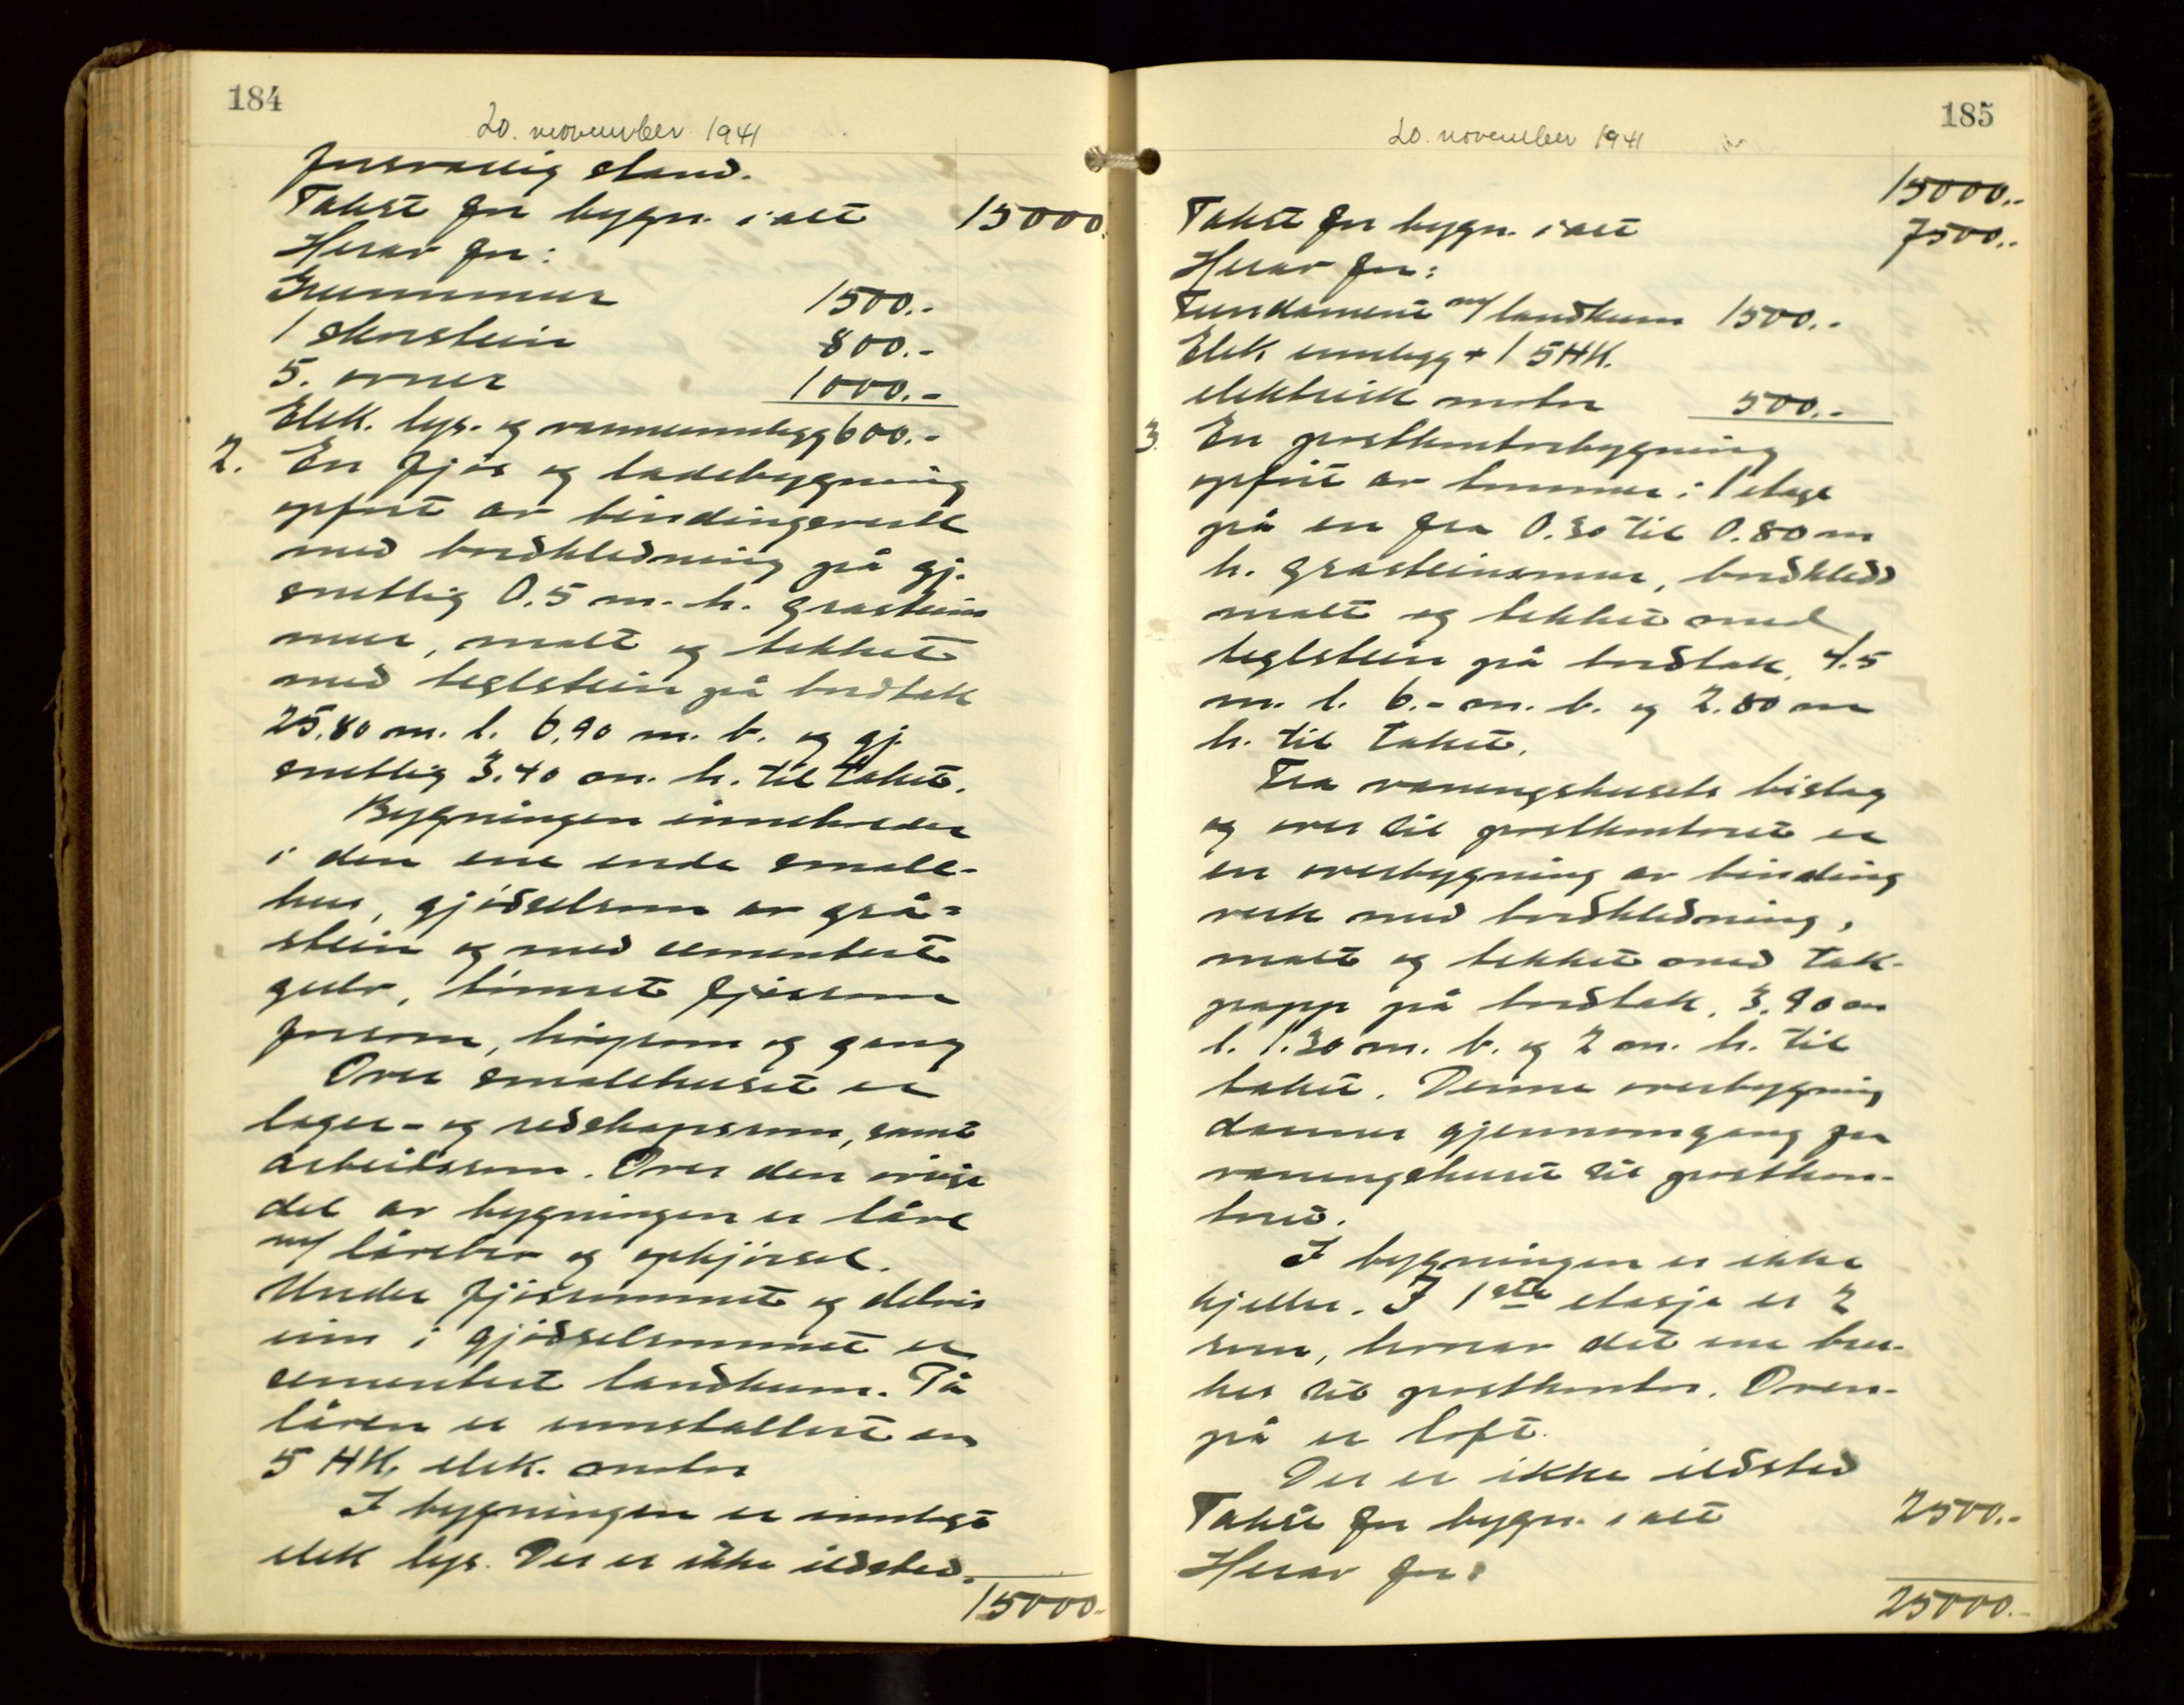 184
20. november 1941
forsvarlig stand.
Takst for bygn. i alt 15000.
Herav for:
Grunnmur 1500.-
1 skorstein 800.-
5. ovner 1000.-
Elek. lys- og vanninnlegg 600.-
2. En fjös og ladebygning
opfört av bindingsverk
med bordkledning på gj.
snittlig 0.5 m. h. gråsteins
mur, malt og tekket
med teglstein på bordtak
25.80 m. l. 6.90 m. b. og gj.
snittlig 3.40 m. h. til taket.
Bygningen inneholder
i den ene ende smale-
hus, gjödselrom av grå-
stein og med cementert
gulv, timret fjösrom
forrom, höyrom og gang
Over smalehuset er
lager- og redskapsrom, samt
arbeidsrom. Over den övrige
del av bygningen er låve
m/ lövebro og opkjörsel.
Under fjösrommet og delvis
inn i gjödselrommet er
cementert landkum. På
låven er innstallert en
5 HK. elek. motor
I bygningen er innlagt
elek lys. Der er ikke ildsted.
15000.-
185
20. november 1941
15000.-
Takst for bygn. i alt 7500.-
Herav for:
Fundament m/ landkum 1500.-
Elek innlegg + 1 5 HK.
elektrisk motor 500.-
3. En postkontorbygning
opfört av tömmer i 1 etage
på en fra 0.30 til 0.80 m
h. gråsteinsmur, bordkledd
malt og tekket med
teglstein på bordtak, 4.5
m. l. 6.- m. b. og 2.80 m
h. til taket.
Fra våningshusets bislag
og over til postkontoret er
en overbygning av binding
verk med bordkledning,
malt og tekket med tak-
papp på bordtak, 3.90 m
l. 1.30 m. b. og 2 m. h. til
taket. Denne overbygning
danner gjennomgang fra
våningshuset til postkon-
toret.
I bygningen er ikke
kjeller. I 1ste etasje er 2
rum, hvorav det ene bru-
kes til postkontor. Oven-
på er loft.
Der er ikke ildsted
Takst for bygn. i alt 2500.-
Herav for:
25000.-